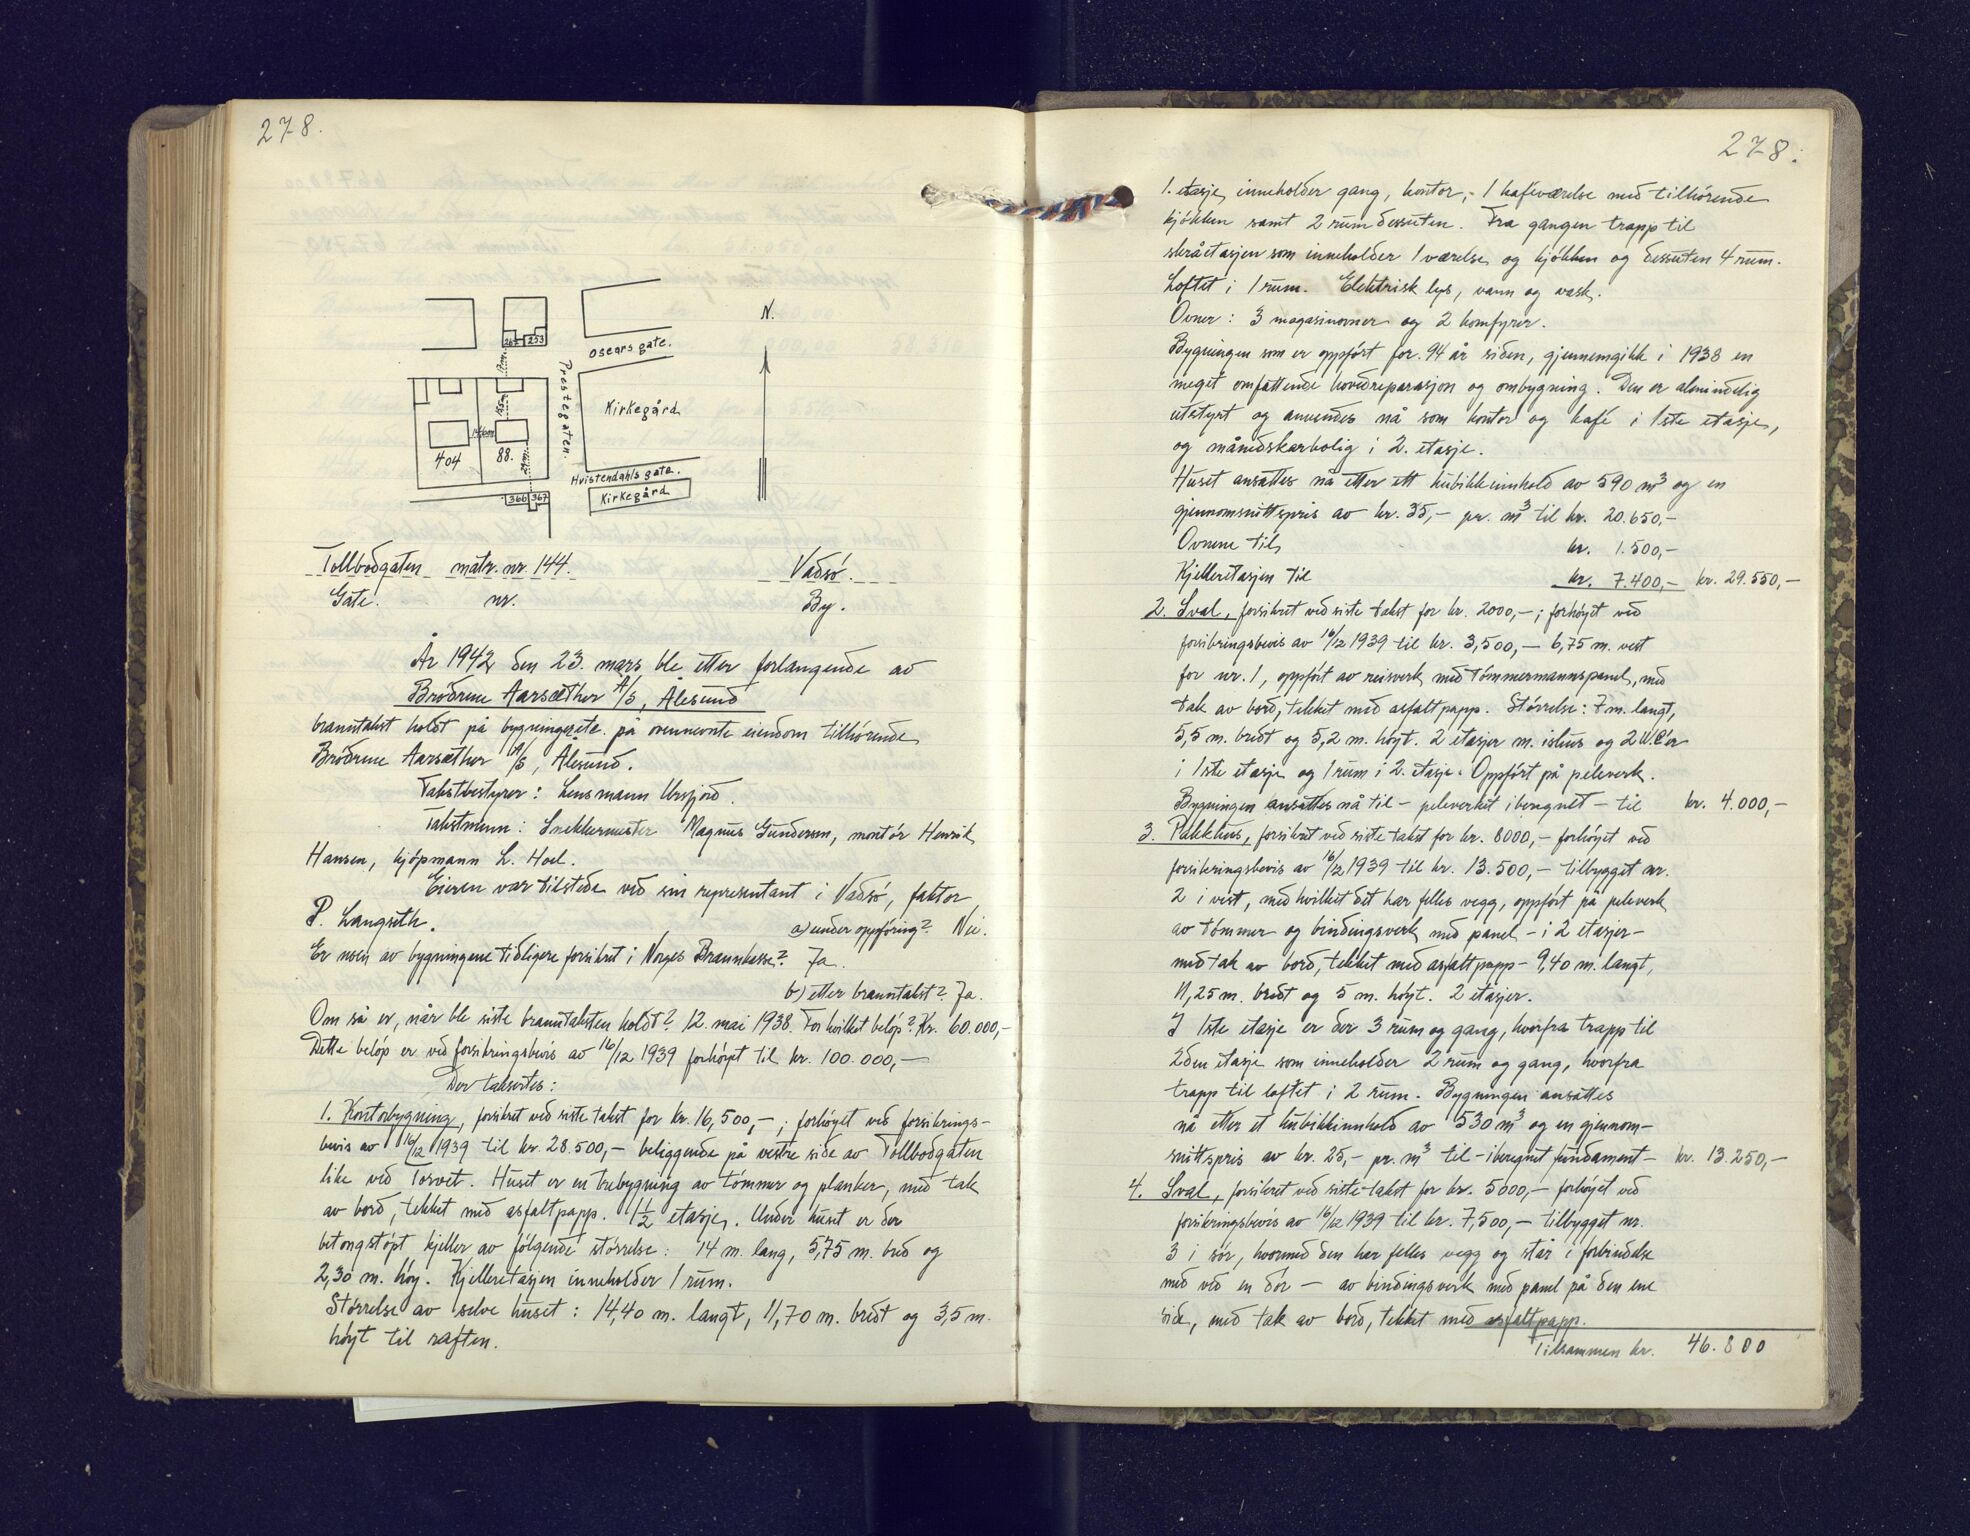 278.
267 253
Oscars gate.
N.
Prestegaten.
Kirkegård
404
88.
Hvistendahls gate.
Kirkegård
366 367
Tollbodgaten matr. nr. 144. Vadsö.
Gate. nr. By.
År 1942 den 23. mars ble etter forlangende av
Brödrene Aarsæther A/S, Ålesund
branntakst holdt på bygningene på ovennevnte eiendom tilhörende
Brödrene Aarsæther A/S, Ålesund.
Takstbestyrer: Lensmann Ursfjord.
Takstmenn: Snekkermester Magnus Gundersen, montör Henrik
Hansen, kjöpmann L. Hoel.
Eieren var tilstede ved sin representant i Vadsö, faktor
P. Langseth.
a) under oppföring? Nei.
Er noen av bygningene tidligere forsikret i Norges Brannkasse? Ja.
b) etter branntakst? Ja.
Om så er, når ble siste branntaksten holdt? 12. mai 1938. For hvilket belöp? Kr. 60.000,-
Dette belöp er ved forsikringsbevis av 16/12 1939 forhöyet til kr. 100.000,-
Der taksertes:
1. Kontorbygning, forsikret ved siste takst for kr. 16,500,-; forhöyet ved forsikrings-
bevis av 16/12 1939 til kr. 28.500,- beliggende på vestre side av Tollbodgaten
like ved Torvet. Huset er en trebygning av tömmer og planker, med tak
av bord, tekket med asfaltpapp. 1½ etasje. Under huset er der
betongstöpt kjeller av fölgende störrelse: 14 m. lang, 5,75 m. bred og
2,30 m. höy. Kjelleretasjen inneholder 1 rum.
Störrelse av selve huset: 14,40 m. langt, 11,70 m. bredt og 3,5 m.
höyt til raften.
278.
1. etasje inneholder gang, kontor, 1 kaféværelse med tilhörende
kjökken samt 2 rum dessuten. Fra gangen trapp til
skråetasjen som inneholder 1 værelse og kjökken og dessuten 4 rum.
Loftet i 1 rum. Elektrisk lys, vann og vask.
Ovner: 3 magasinovner og 2 komfyrer.
Bygningen som er oppfört for 94 år siden, gjennemgikk i 1938 en
meget omfattende hovedreparasjon og ombygning. Den er almindelig
utstyrt og anvendes nå som kontor og kafé i 1ste etasje,
og månedskarbolig i 2. etasje.
Huset ansattes nå etter ett kubikkinnhold av 590 m³ og en
gjennomsnittspris av kr. 35,- pr. m³ til kr. 20.650,-
Ovnene til kr. 1.500,-
Kjelleretasjen til kr. 7.400,- kr. 29.550,-
2. Sval, forsikret ved siste takst for kr. 2000,-; forhöyet ved
forsikringsbevis av 16/12 1939 til kr. 3,500,- 6,75 m. vest
for nr. 1, oppfört av reisverk med tömmermannspanel, med
tak av bord, tekket med asfaltpapp. Störrelse: 7 m. langt,
5,5 m. bredt og 5,2 m. höyt. 2 etasjer m. ishus og 2 W.C'er
i 1ste etasje og 1 rum i 2. etasje. Oppfört på peleverk.
Bygningen ansattes nå til - peleverket iberegnet - til kr. 4.000,-
3. Pakkhus, forsikret ved siste takst for kr. 8000,- forhöyet ved
forsikringsbevis av 16/12 1939 til kr. 13.500,- tilbygget nr.
2 i vest, med hvilket det har felles vegg, oppfört på peleverk
av tömmer og bindingsverk med panel - i 2 etasjer -
med tak av bord, tekket med asfaltpapp - 9,40 m. langt,
11,25 m. bredt og 5 m. höyt. 2 etasjer.
I 1ste etasje er der 3 rum og gang, hvorfra trapp til
2den etasje som inneholder 2 rum og gang, hvorfra
trapp til loftet i 2 rum. Bygningen ansattes
nå etter et kubikkinnhold av 530 m³ og en gjennom-
snittspris av kr. 25,- pr. m³ til - iberegnet fundament - kr. 13.250,-
4. Sval, forsikret ved siste takst for kr. 5000,- forhöyet ved
forsikringsbevis av 16/12 1939 til kr. 7,500,- tilbygget nr.
3 i sör, hvormed den har felles vegg og står i forbindelse
med ved en dör - av bindingsverk med panel på den ene
side, med tak av bord, tekket med asfaltpapp.
Tilsammen kr. 46.800